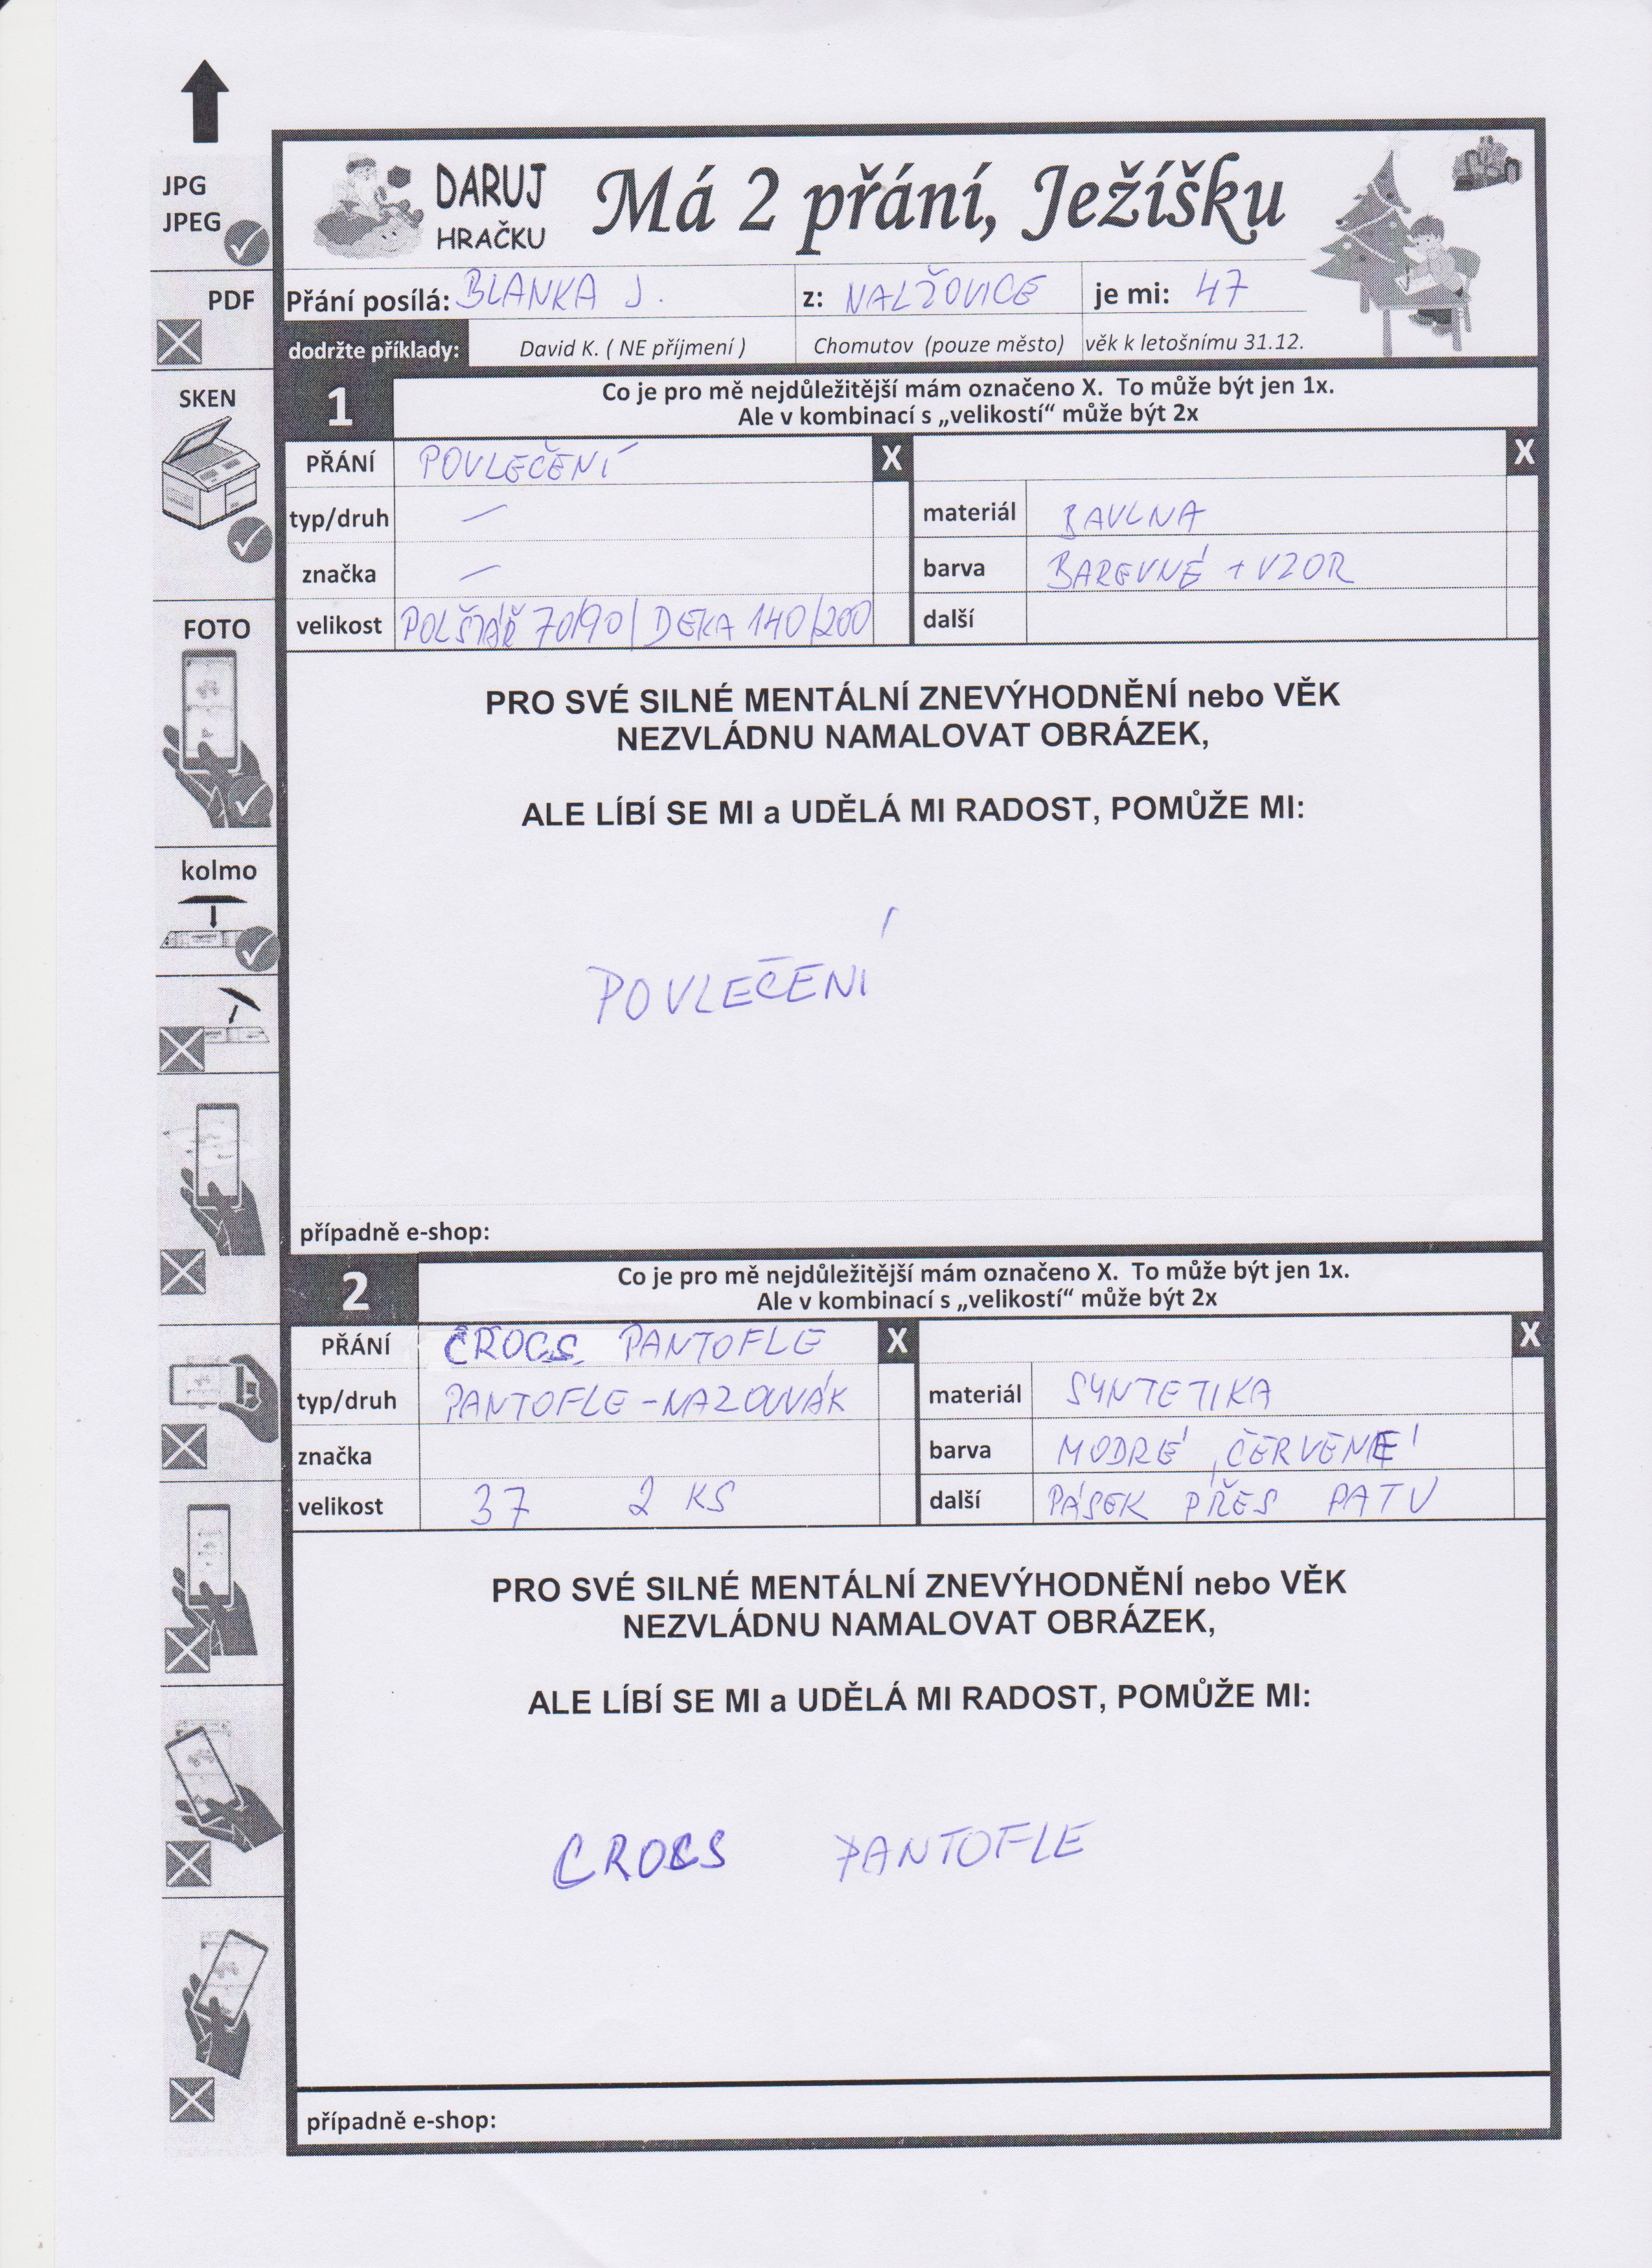 JPG
JPEG
DARUJ
HRAČKU
Má 2 přání, Ježíšku
PDF
Přání posílá: BLANKA J. z: NALŽOVICE je mi: 47
dodržte příklady: David K. ( NE příjmení ) Chomutov (pouze město) věk k letošnímu 31.12.
SKEN
1
Co je pro mě nejdůležitější mám označeno X. To může být jen 1x.
Ale v kombinací s „velikostí“ může být 2x
PŘÁNÍ POVLEČENÍ X X
typ/druh — materiál BAVLNA
značka — barva BAREVNÉ + VZOR
velikost POLŠTÁŘ 70/90 / DEKA 140/200 další
FOTO
PRO SVÉ SILNÉ MENTÁLNÍ ZNEVÝHODNĚNÍ nebo VĚK
NEZVLÁDNU NAMALOVAT OBRÁZEK,
ALE LÍBÍ SE MI a UDĚLÁ MI RADOST, POMŮŽE MI:
kolmo
POVLEČENÍ
případně e-shop:
2
Co je pro mě nejdůležitější mám označeno X. To může být jen 1x.
Ale v kombinací s „velikostí“ může být 2x
PŘÁNÍ CROCS PANTOFLE X X
typ/druh PANTOFLE - NAZOUVÁK materiál SYNTETIKA
značka barva MODRÉ, ČERVENÉ
velikost 37 2 KS další PÁSEK PŘES PATU
PRO SVÉ SILNÉ MENTÁLNÍ ZNEVÝHODNĚNÍ nebo VĚK
NEZVLÁDNU NAMALOVAT OBRÁZEK,
ALE LÍBÍ SE MI a UDĚLÁ MI RADOST, POMŮŽE MI:
CROCS PANTOFLE
případně e-shop: